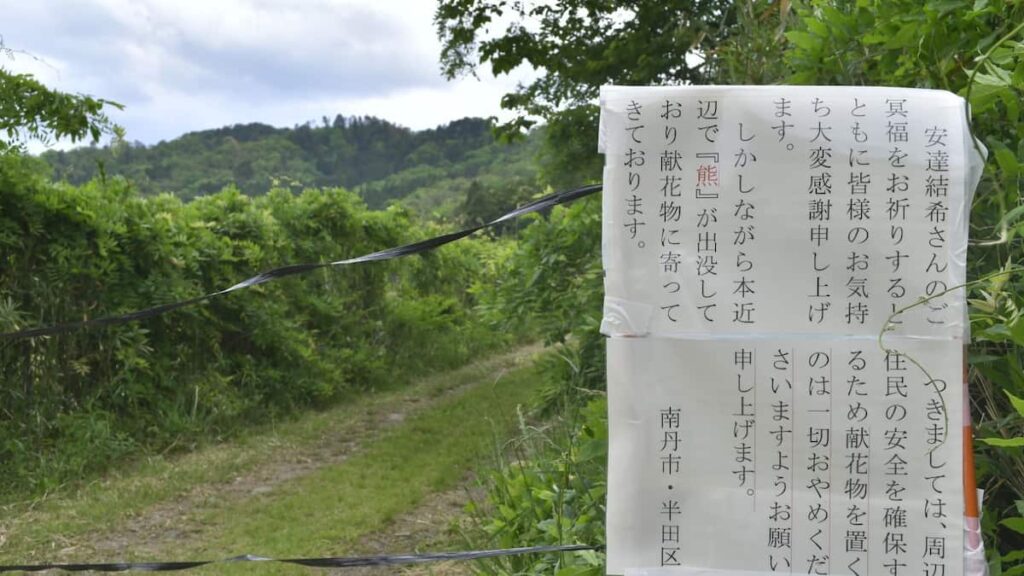 安達結希さんのご
冥福をお祈りすると
ともに皆様のお気持
ち大変感謝申し上げ
ます。
しかしながら本近
辺で『熊』が出没して
おり献花物に寄って
きております。
つきましては、周辺
住民の安全を確保す
るため献花物を置く
のは一切おやめくだ
さいますようお願い
申し上げます。
南丹市・半田区